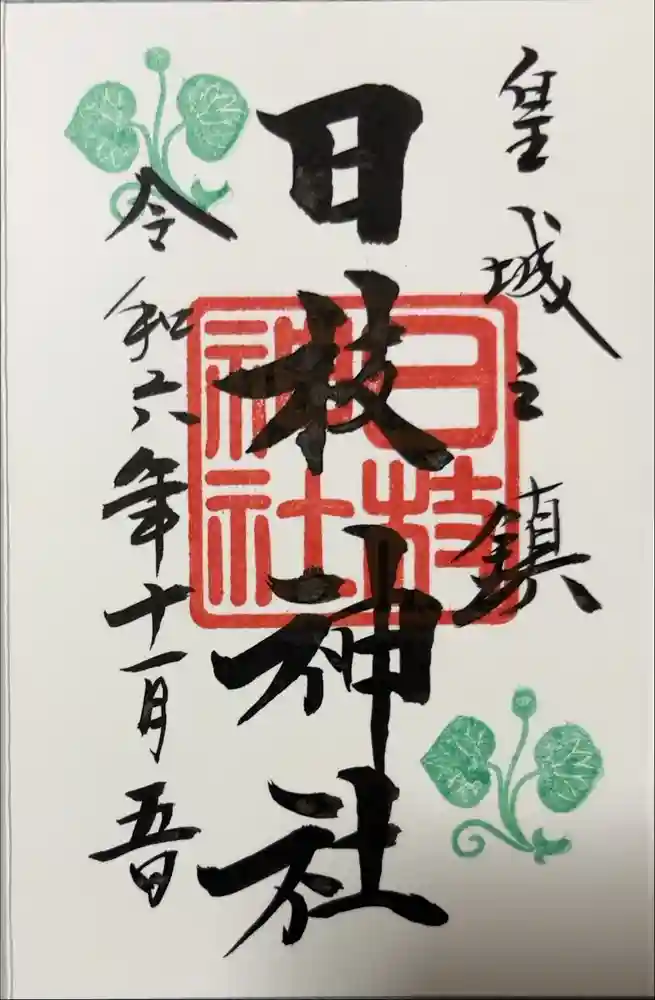 皇城之鎮
日枝神社
日枝
神社
令和六年十一月五日